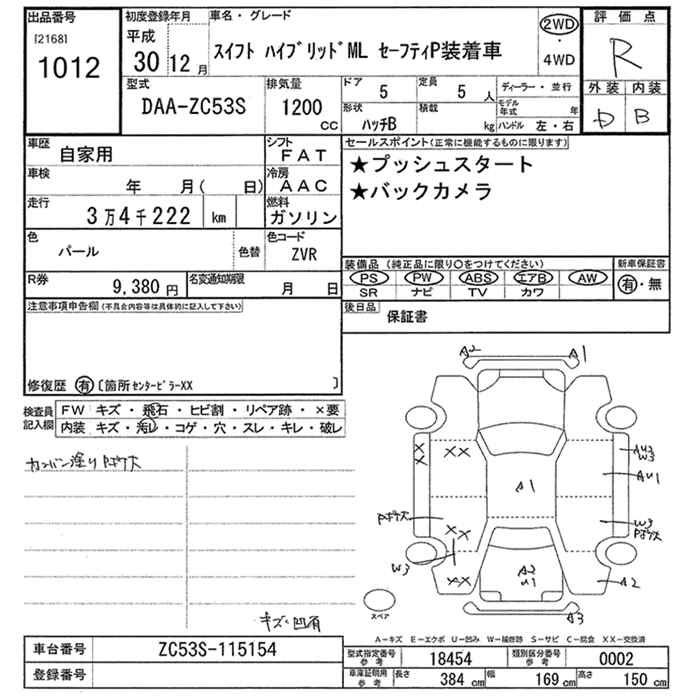 出品番号
[2168]
1012
初度登録年月
平成
30 12 月
車名・グレード
スイフト ハイブリッドML セーフティP装着車
2WD
・
4WD
評価点
R
外装 内装
D B
型式
DAA-ZC53S
排気量
1200
cc
ドア
5
定員
5 人
形状
ハッチB
積載
kg
ディーラー・並行
モデル年式 年
ハンドル 左・右
車歴
自家用
シフト
FAT
車検
年 月( 日)
冷房
AAC
走行
3万4千222 km
燃料
ガソリン
色
パール
色替
色コード
ZVR
R券
9,380 円
名変通知期限
月 日
セールスポイント(正常に機能するものに限ります)
★プッシュスタート
★バックカメラ
装備品 (純正品に限り○をつけてください)
PS PW ABS エアB AW
SR ナビ TV カワ
新車保証書
有・無
後日品
保証書
注意事項申告欄(不具合内容等は具体的に記入して下さい)
修復歴 有 〔箇所 センターピラーXX 〕
検査員
記入欄
FW キズ・飛石・ヒビ割・リペア跡・×要
内装 キズ・汚レ・コゲ・穴・スレ・キレ・破レ
カンバン塗り Pボケ大
キズ・凹有
A2
A1
XX
XX
AU3
W3
AU1
A1
Pボケ大
XX
W3
Pボケ大
W3
XX
A2
U1
A2
A3
スペア
A−キズ E−エクボ U−凹み W−補修跡 S−サビ C−腐食 XX−交換済
車台番号
ZC53S-115154
登録番号
型式指定番号
参考
18454
類別区分番号
参考
0002
車庫証明用
参考
長さ
384 cm
幅
169 cm
高さ
150 cm